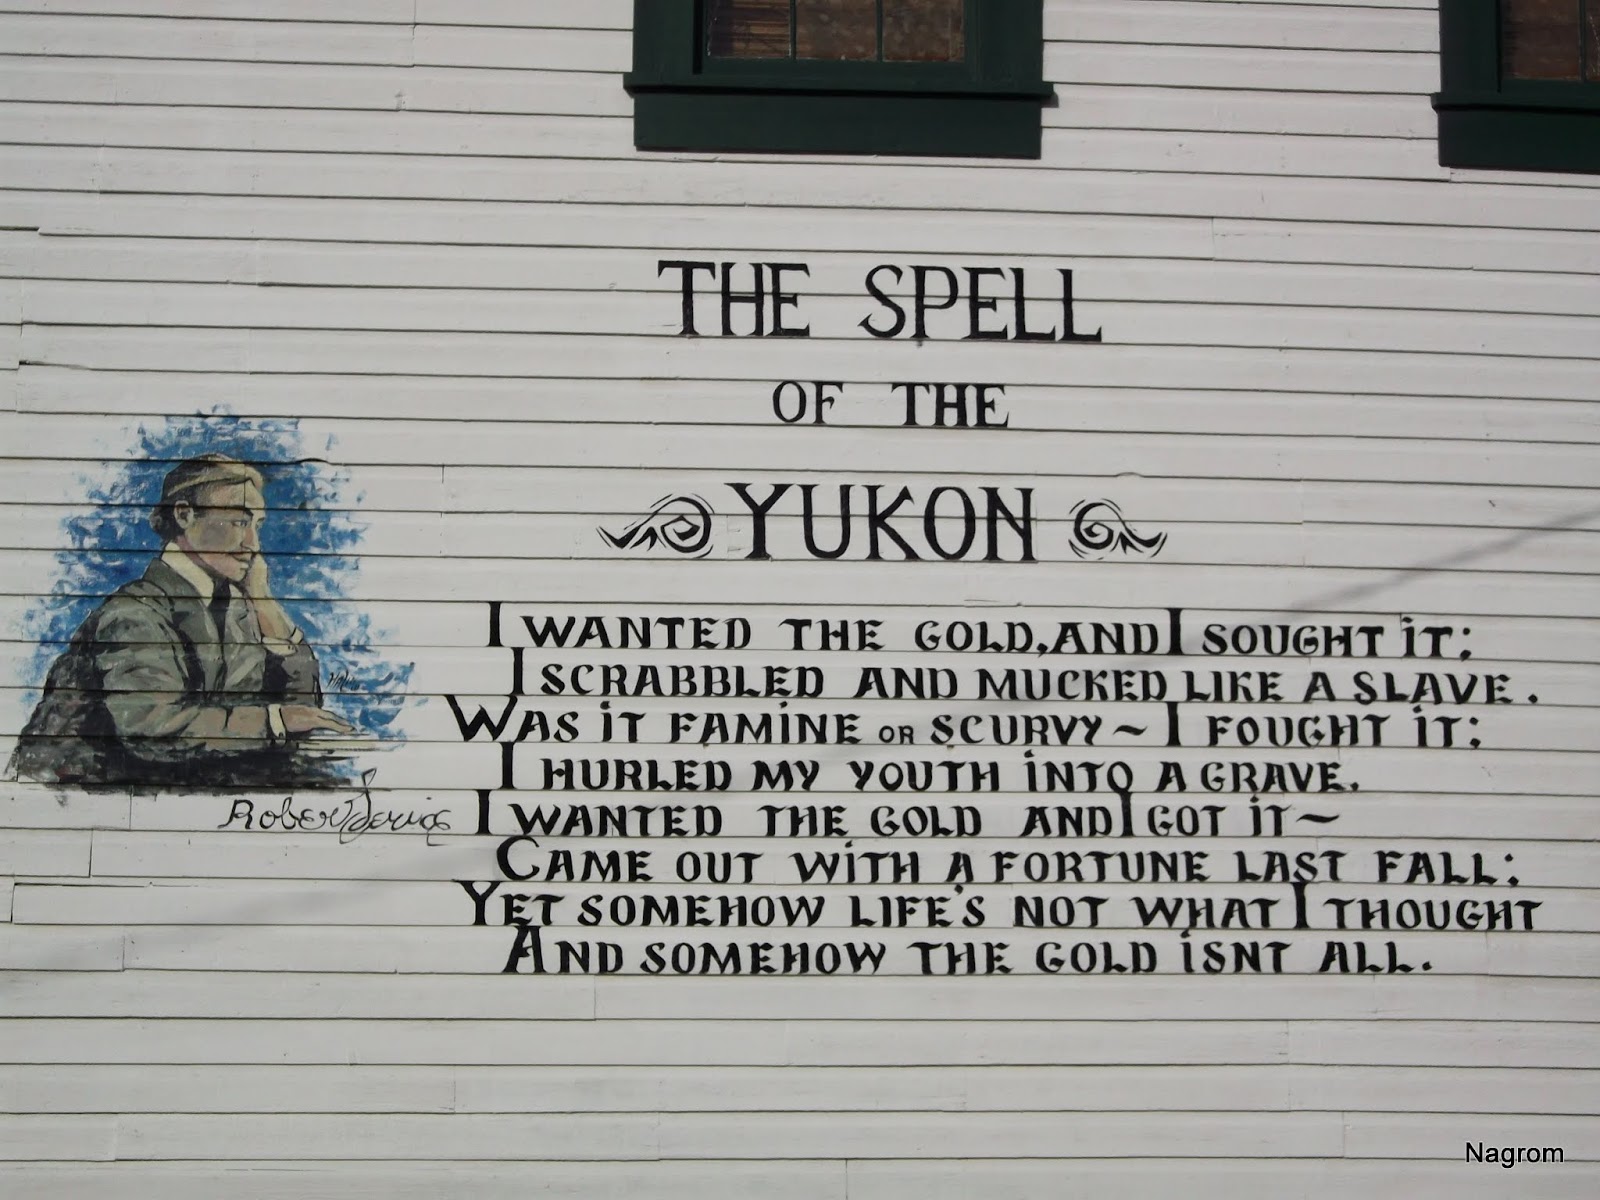 THE SPELL
OF THE
YUKON
I WANTED THE GOLD, AND I SOUGHT IT;
I SCRABBLED AND MUCKED LIKE A SLAVE.
WAS IT FAMINE OR SCURVY ~ I FOUGHT IT;
I HURLED MY YOUTH INTO A GRAVE.
I WANTED THE GOLD AND I GOT IT ~
CAME OUT WITH A FORTUNE LAST FALL;
YET SOMEHOW LIFE'S NOT WHAT I THOUGHT
AND SOMEHOW THE GOLD ISNT ALL.
Robert Service
Nagrom